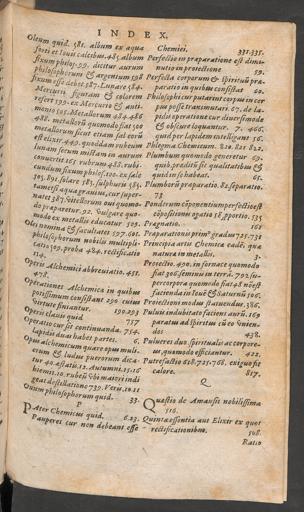 INDEX.
Oleum quid. 581. album ex aqua
forti et Iouis calcibus. 485. album
fixum philos. 99. dicitur aurum
philosophorum & argentum 598
fixum esse debet 587. Lunare 584.
Mercurij figurans & colorem
refert 199. ex Mercurio & anti-
monio 105. Metallorum 484.486
488. metallorũ quomodo fiat 300
metallorum sicut etiam sal eorũ
est elixir. 449. quoddam rubeum
lunam secum mistam in aurum
conuertit 165 rubrum 488. rubi-
cundum fixum philos. 100. ex sale
303. 891. solare 583. sulphuris 585.
tartari aqua
matis 387. vitellorum oui quomo-
do praparetur 22. vulgare quo-
modo ex metallis educatur 509.
Oleinomina & facultates 597. 601.
philosophorum nobilis multipli-
catio 599. proba 484. rectificatio
114.
Operis Alchemici abbreviatio. 451.
478.
Operationes Alchemica in quibus
potissimum consistant 290 cuius
virtute finiantur. 290 293
Operis clauis quid 757
Operatio cur sit continuanda. 754.
Lapidis duas habet partes. 6.
Opus alchemicum quare opus muli-
erum & ludus puerorum dica-
tur 40. astatis. 12. Autumni. 15.16
hiemis. 10. rubeũ
geat destillatione 739. Veris. 10. 11
Ouum philosophorum quid. 33.
P
PAter Chemicus quid. 623.
Pauperes cur non debeant esse
Chemici. 331.335.
Perfectio in praparatione est dimi-
nutio in proiectione 59.
Perfecta corporum & spirituũ pra-
paratio in quibus consistat 60.
Philosophi cur putarint corpus in cor
pus posse transmutari. 67. de la-
pidis operatione cur diuersimode
& obscure loquantur. 7. 466.
quid per lapidem intelligant 56.
Phlegma Chemicum. 820. 821 822.
Plumbum quomodo generetur 69.
quale, praedit sic qualitatibus &
quid in se habeat. 61.
Plumborũ praparatio. 82. separatio.
73
Ponderum cõponentium perfectio est
cõpositionis optatio 58. portio. 535
Pragnatio. 165
Praparationis primº gradus 725. 731
Principia artis Chemica eadẽ, qua
natura in metallis. 3.
Proiectio. 490. in fornace quomodo
fiat 306. feminis in terrã. 792. super
corpora quomodo fiat. 48 non est
facienda in Ioue & Saturno 305.
Proiectionis modus statuendus. 386.
Puluis indubitato faciens aurũ. 169
paratus ad spiritus cũ eo vnien-
dos 438.
Pulueres duo spiritualis ac corpore-
us, quomodo efficiantur. 422.
Putrefactio 618. 725.768. exiguo fit
calore. 817.
Q
Quastio de Amansis nobilissima
516.
Quinta essentia aut Elixir ex quo
rectificationibus. 508.
Ratio